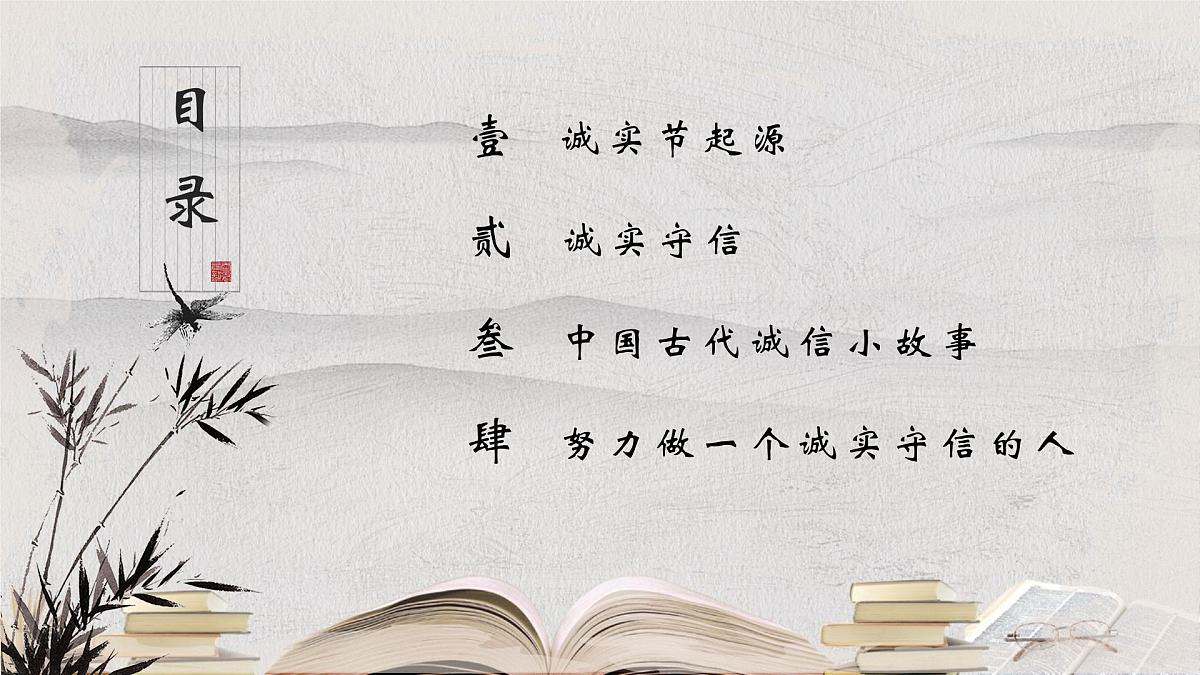 目录
壹 诚实节起源
贰 诚实守信
叁 中国古代诚信小故事
肆 努力做一个诚实守信的人